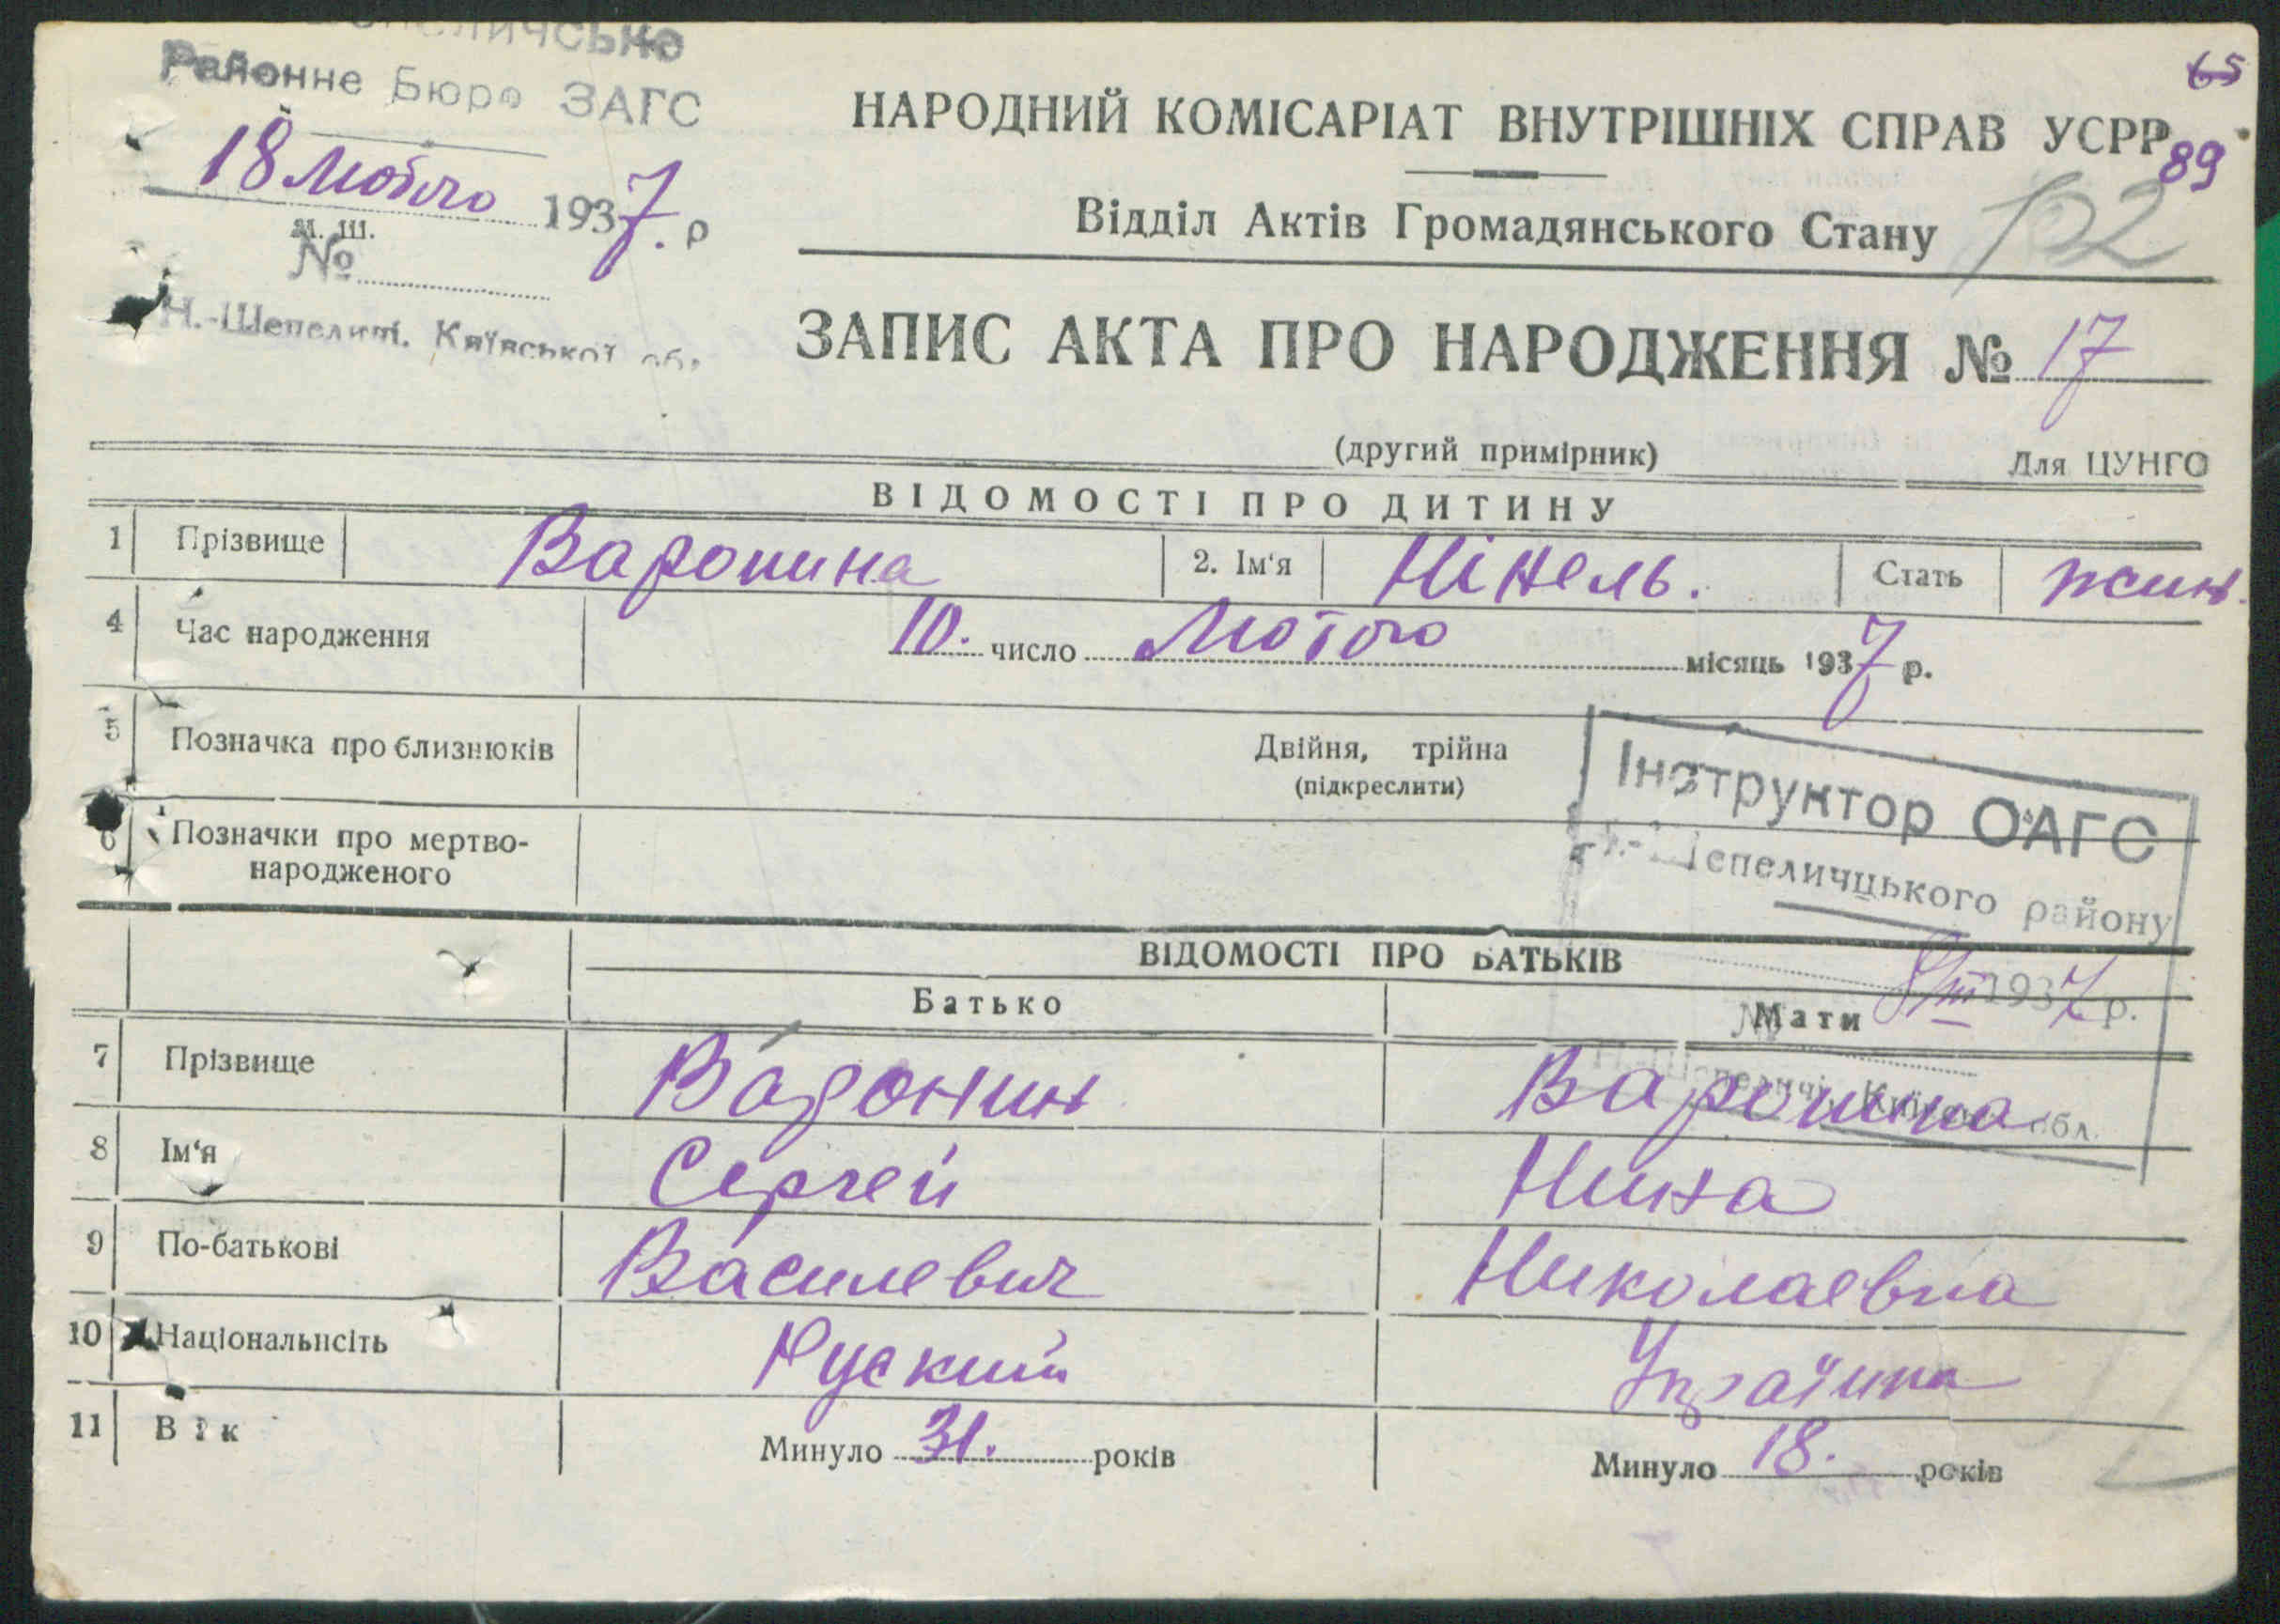 65
Районне Бюро ЗАГС
НАРОДНИЙ КОМІСАРІАТ ВНУТРІШНІХ СПРАВ УСРР
89
18 Лютого 1937 р
м. ш.
Відділ Актів Громадянського Стану
№
Н.-Шепеличі, Київської обл.
ЗАПИС АКТА ПРО НАРОДЖЕННЯ № 17
(другий примірник) Для ЦУНГО
ВІДОМОСТІ ПРО ДИТИНУ
1 Прізвище Варонина 2. Ім'я Нінель. Стать жин.
4 Час народження 10. число Лютого місяць 1937 р.
5 Позначка про близнюків Двійня, трійна
(підкреслити)
Інструктор ОАГС
6 Позначки про мертво-
народженого
Шепеличцького району
ВІДОМОСТІ ПРО БАТЬКІВ
III 1937 р.
Батько Мати
№
7 Прізвище Варонин Варонина
обл.
8 Ім'я Сергей Нина
9 По-батькові Василевич Николаевна
10 Національнсіть Руский Українка
11 Вік Минуло 31. років Минуло 18. років